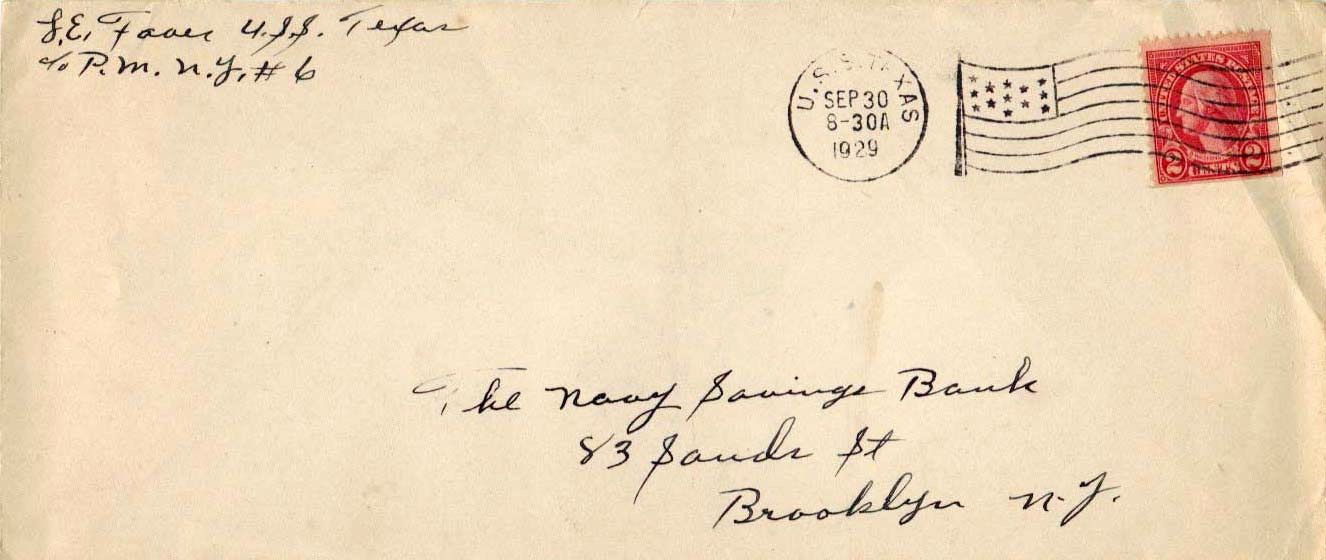 S.E. Faver U.S.S. Texas
c/o P.M. N.Y. # 6
U.S.S. TEXAS
SEP 30
8-30A
1929
UNITED STATES POSTAGE
2 CENTS 2
The Navy Savings Bank
83 Sands St
Brooklyn N.Y.